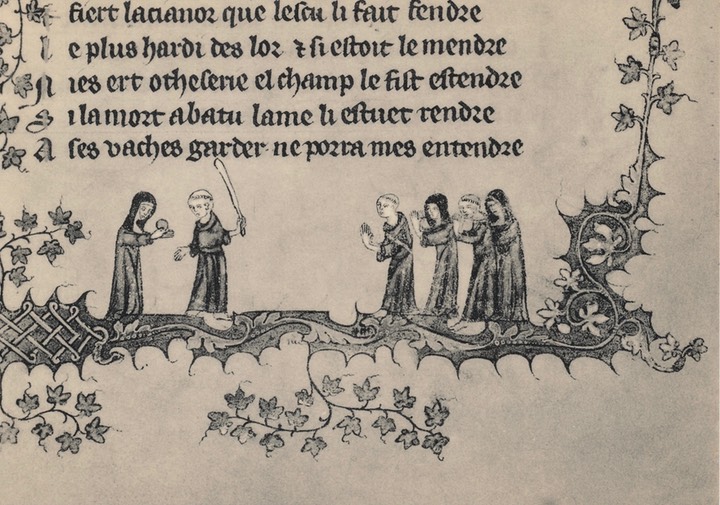 fiert lacianor que lescu li fait fendre
l e plus hardi des lor ⁊ si estoit le mendre
N ies ert otheserie el champ le fist estendre
S i la mort abatu lame li estuet rendre
A ses vaches garder ne porra mes entendre